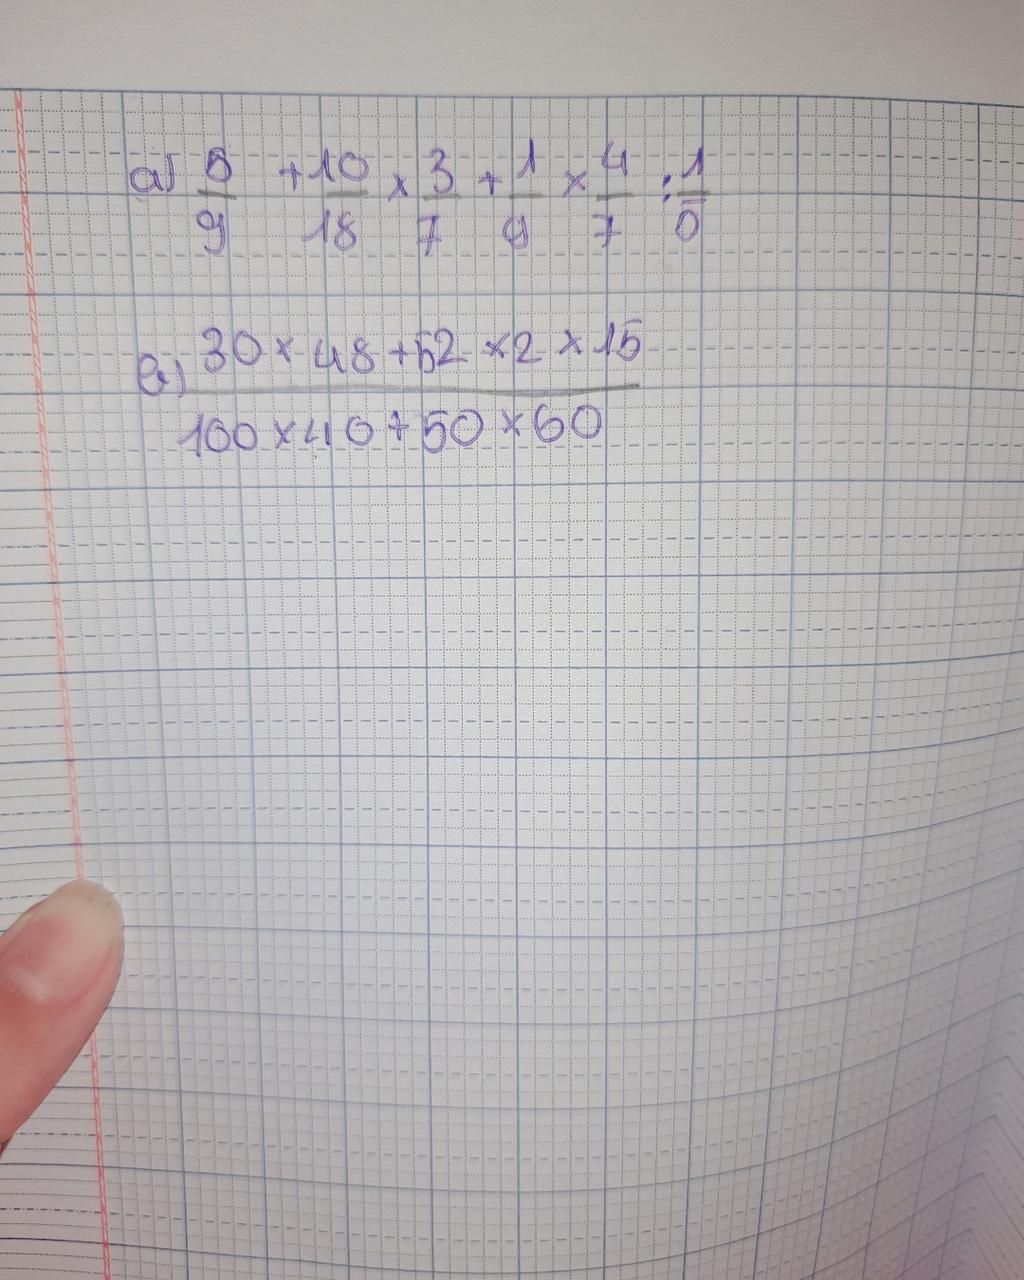 a) 5/9 + 10/18 × 3/7 + 1/9 × 4/7 : 1/5
b) 30 × 48 + 52 × 2 × 15
100 × 40 + 50 × 60